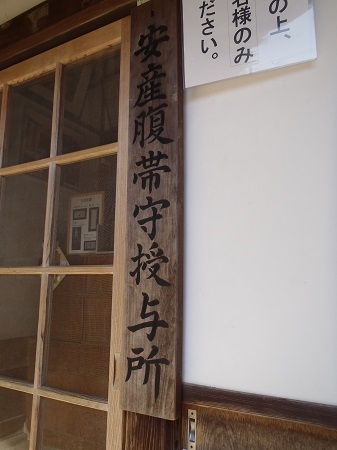 安産腹帯守授与所
の上、
名様のみ
ださい。